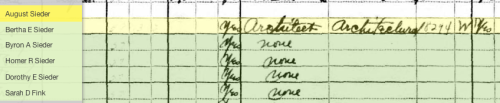 August Sieder
Bertha E Sieder Yes Architect Architectural 8294 W Yes
Byron A Sieder Yes none
Homer R Sieder Yes none
Dorothy E Sieder Yes none
Sarah D Fink Yes none